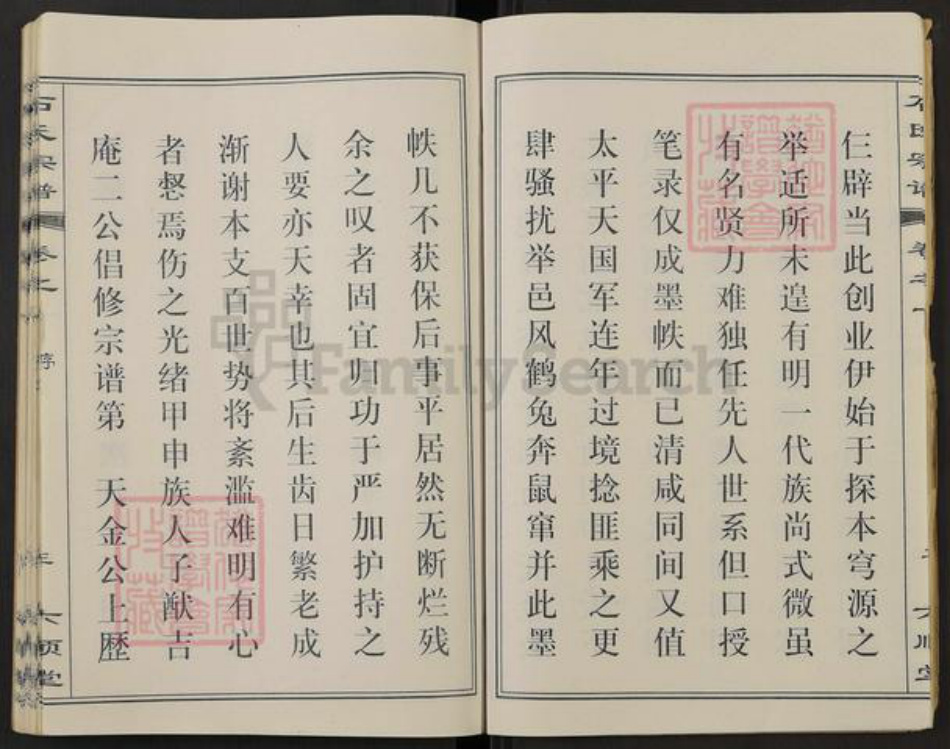 仨辟当此创业伊始于探本穹源之
举适所未遑有明一代族尚式微虽
有名贤力难独任先人世系但口授
笔录仅成墨帙而已清咸同间又值
太平天国军连年过境捻匪乘之更
肆骚扰举邑风鹤兔奔鼠窜并此墨
帙几不获保后事平居然无断烂残
余之叹者固宜归功于严加护持之
人要亦天幸也其后生齿日繁老成
渐谢本支百世势将紊滥难明有心
者惄焉伤之光绪甲申族人子猷吉
庵二公倡修宗谱第 天金公上歷
石氏宗谱 卷之 序 三 大顺堂
FamilySearch